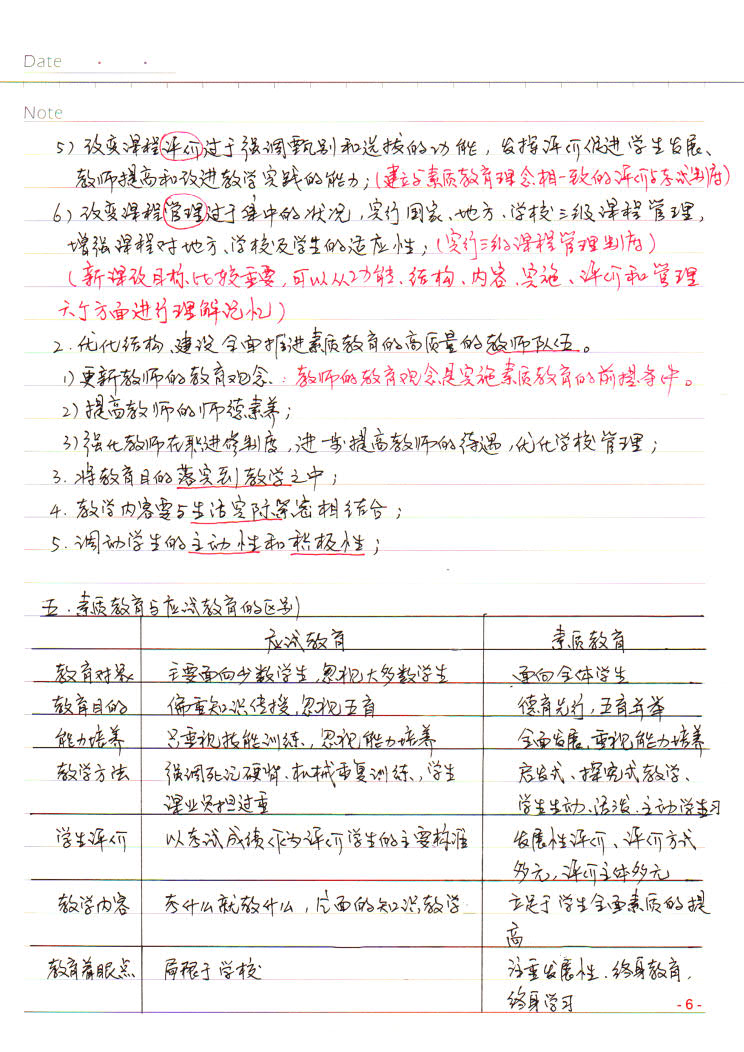 Date
Note
5) 改变课程评价过于强调甄别和选拔的功能，发挥评价促进学生发展、
教师提高和改进教学实践的能力；(建立与素质教育理念相一致的评价与考试制度)
6) 改变课程管理过于集中的状况，实行国家、地方、学校三级课程管理，
增强课程对地方、学校及学生的适应性；(实行三级课程管理制度)
(新课改目标比较重要，可以从功能、结构、内容、实施、评价和管理
六个方面进行理解记忆)
2. 优化结构、建设全面推进素质教育的高质量的教师队伍。
1) 更新教师的教育观念：教师的教育观念是实施素质教育的前提条件。
2) 提高教师的师德素养；
3) 强化教师在职进修制度，进一步提高教师的待遇，优化学校管理；
3. 将教育目的落实到教学之中；
4. 教学内容要与生活实际紧密相结合；
5. 调动学生的主动性和积极性；
五. 素质教育与应试教育的区别
应试教育 素质教育
教育对象 主要面向少数学生，忽视大多数学生 面向全体学生
教育目的 偏重知识传授，忽视五育 德育先行，五育并举
能力培养 只重视技能训练，忽视能力培养 全面发展，重视能力培养
教学方法 强调死记硬背、机械重复训练，学生 启发式、探究式教学、
课业负担过重 学生生动、活泼、主动学习
学生评价 以考试成绩作为评价学生的主要标准 发展性评价、评价方式
多元，评价主体多元
教学内容 考什么就教什么，片面的知识教学 立足于学生全面素质的提
高
教育着眼点 局限于学校 注重发展性、终身教育，
终身学习
- 6 -